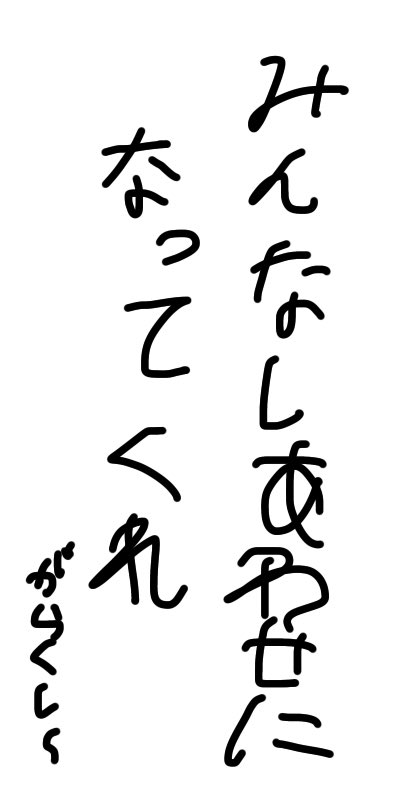 みんなしあわせに
なってくれ
がらくし〜